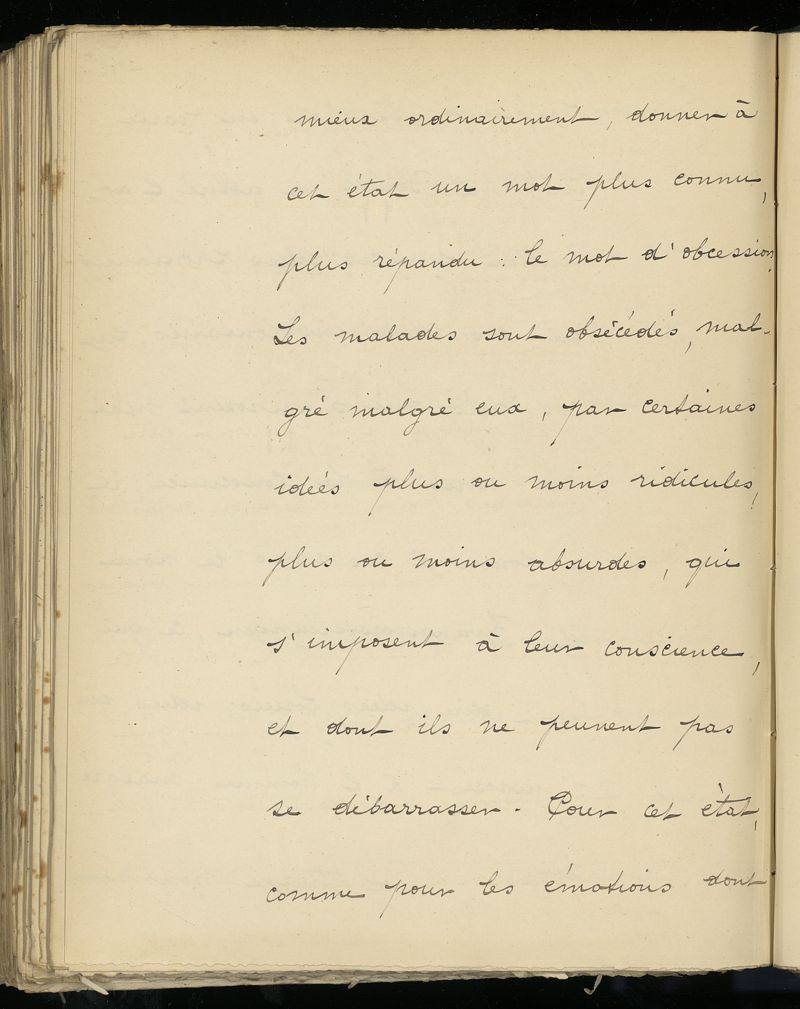 mieux ordinairement, donner à
cet état un mot plus connu,
plus répandu : le mot d'obcession.
Les malades sont obsécédés, mal-
gré malgré eux, par certaines
ideés plus ou moins ridicules,
plus ou moins absurdes, qui
s'imposent à leur conscience,
et dont ils ne peuvent pas
se débarrasser. Pour cet état,
comme pour les émotions dont